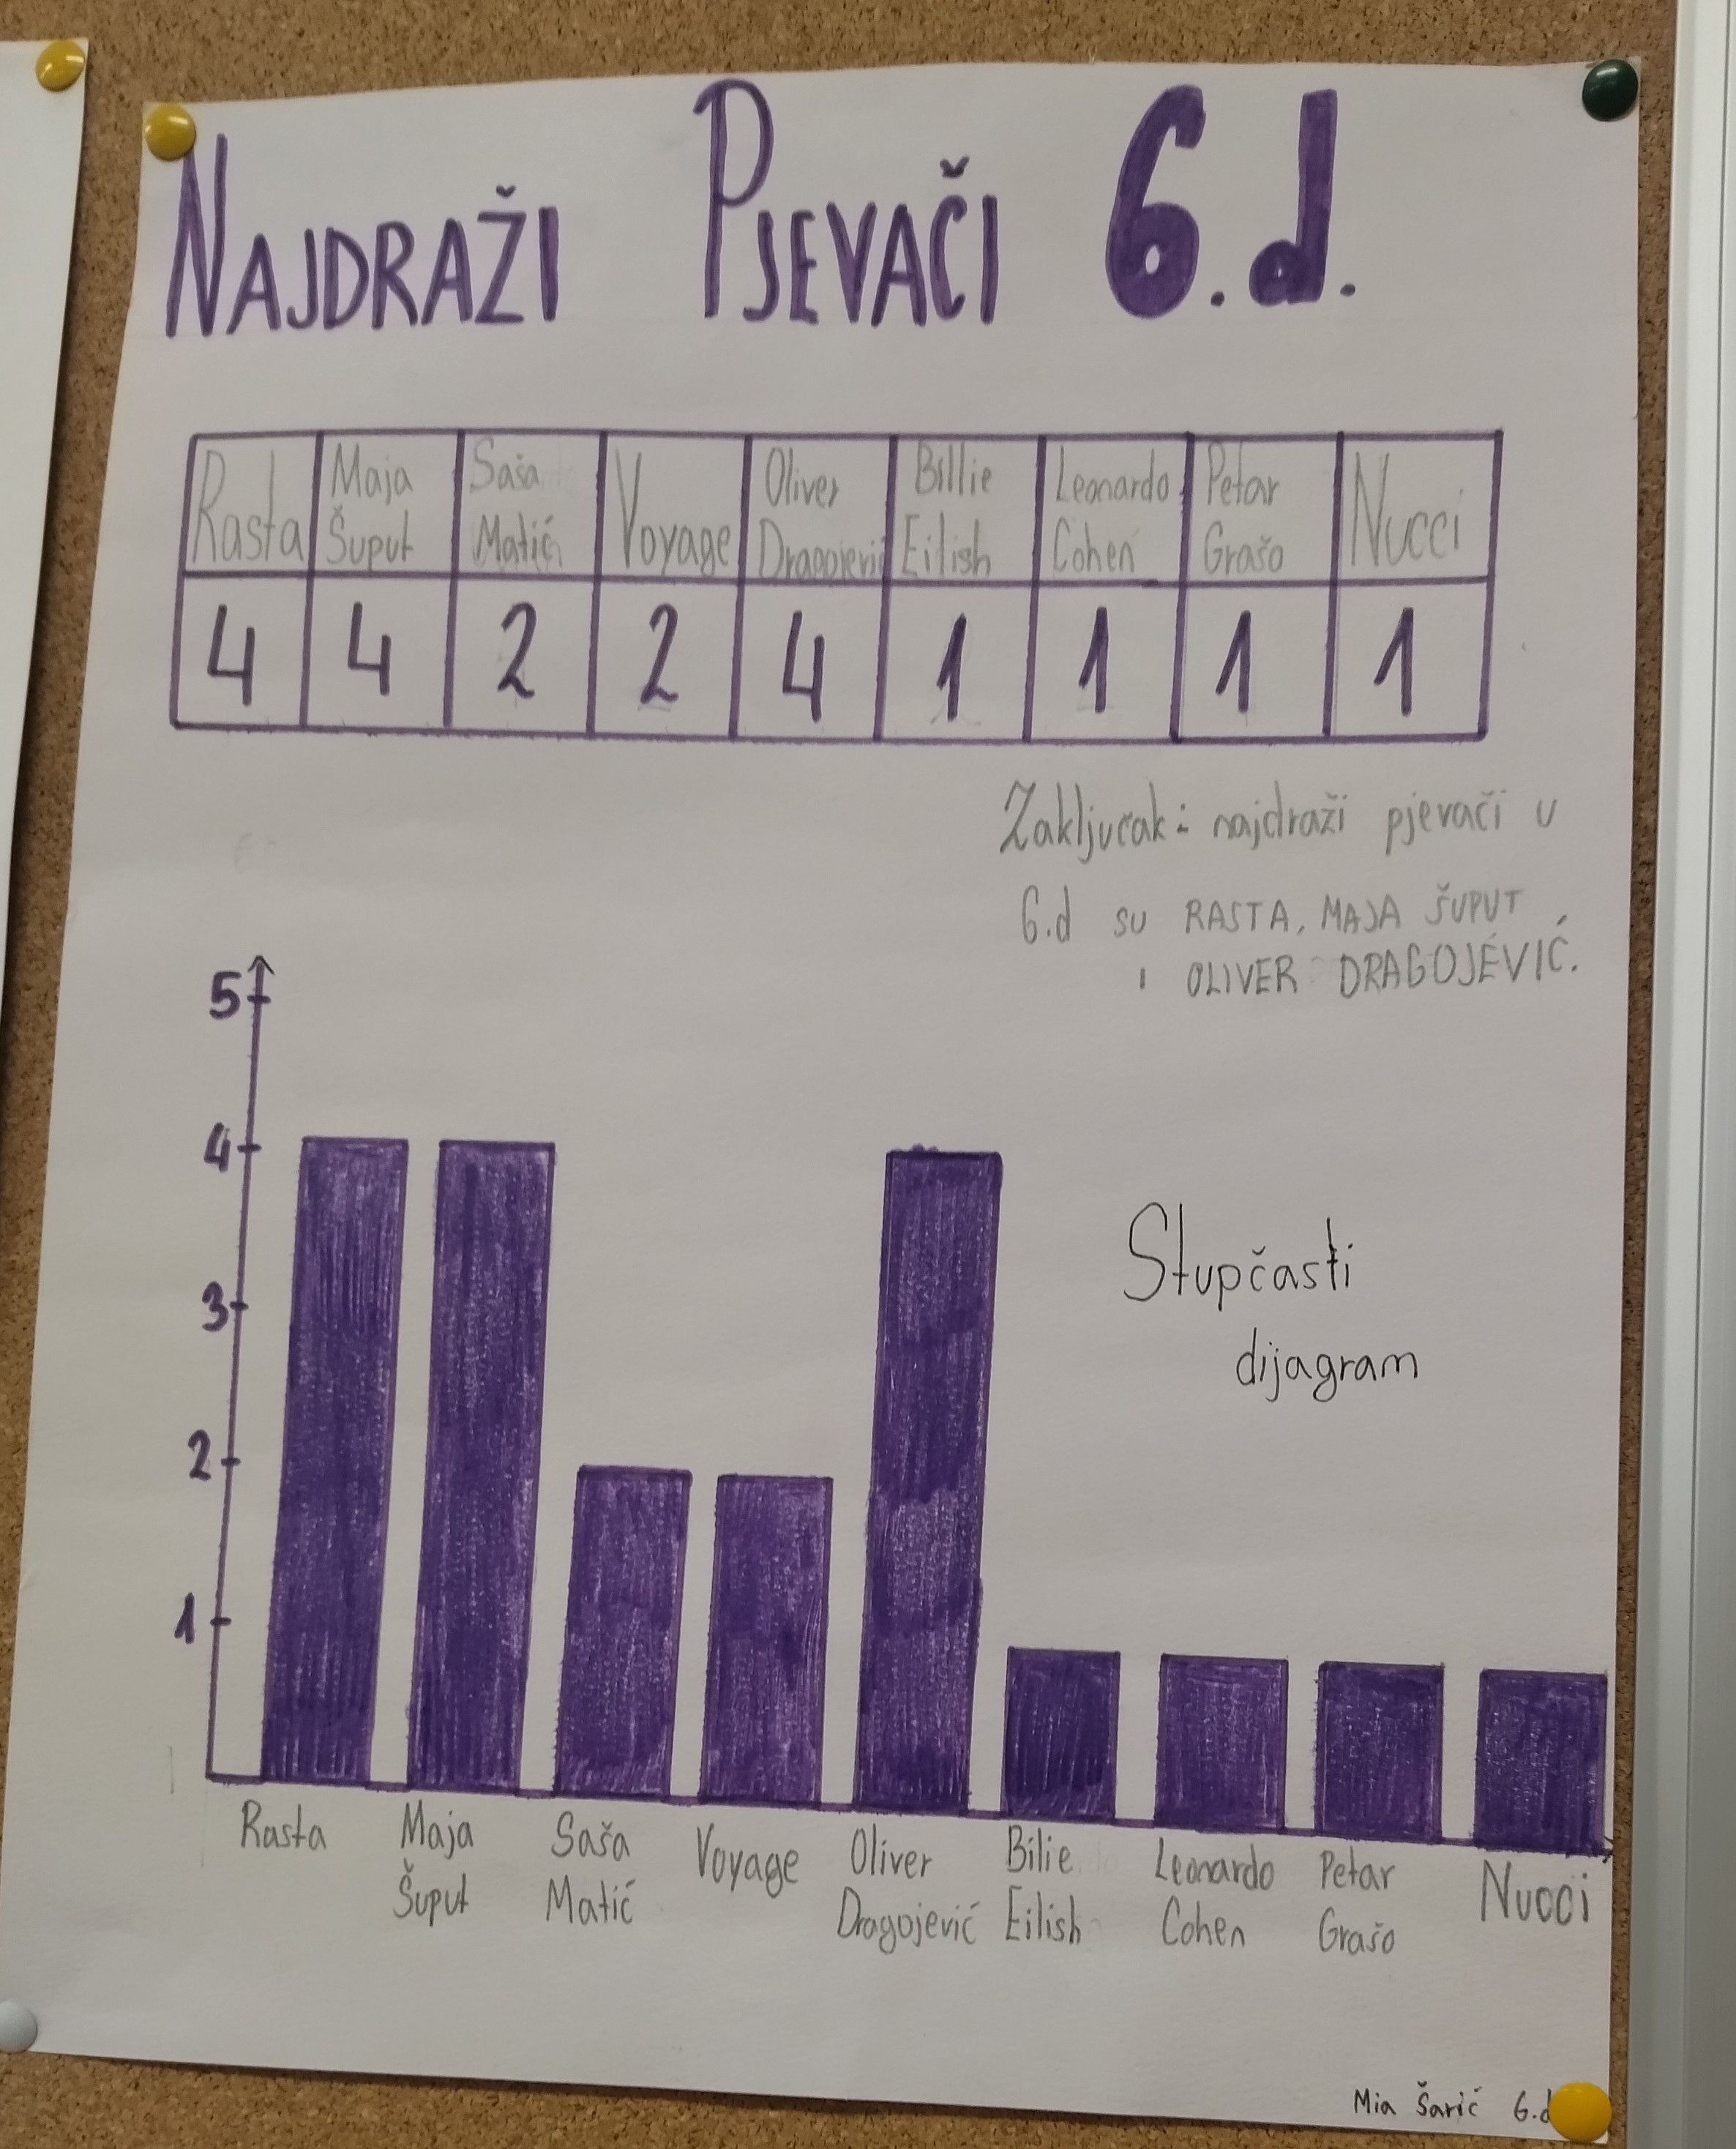 NAJDRAŽI PJEVAČI 6.d.
Rasta Maja Šuput Saša Matić Voyage Oliver Dragojević Billie Eilish Leonardo Cohen Petar Grašo Nucci
4 4 2 2 4 1 1 1 1
Zaključak: najdraži pjevači u
6.d su RASTA, MAJA ŠUPUT
I OLIVER DRAGOJEVIĆ.
5
4
3
2
1
Stupčasti
dijagram
Rasta Maja Šuput Saša Matić Voyage Oliver Dragojević Bilie Eilish Leonardo Cohen Petar Grašo Nucci
Mia Šarić 6.d